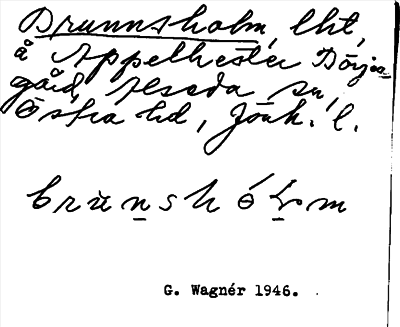 Brunnsholm, lht,
å Appelhester Börja-
gård, Alseda sn,
Östra hd, Jönk. l.
brùnshóḷm
G. Wagnér 1946.